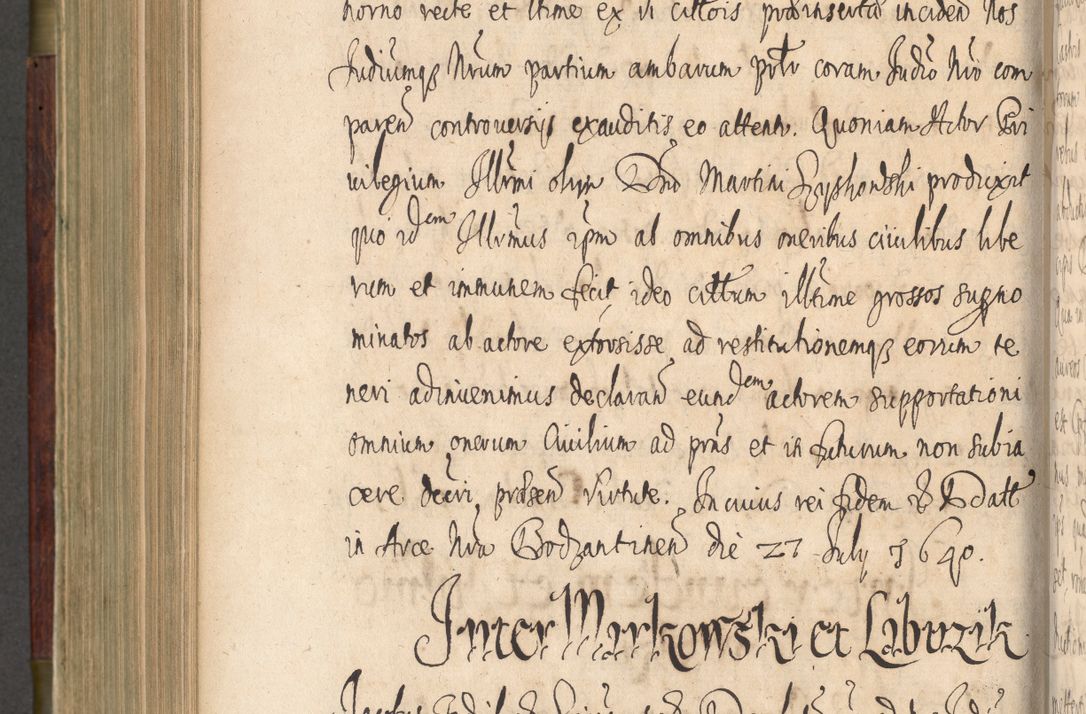 horno recte et ltime ex vi cittois prdinserta inciden Nos
Judiumqz Nrum partium ambarum prtr coram Judio Nro com
paren controuersijs exauditis eo attento. Quoniam Actor Pri
uilegium Illrmi olim Dni Martini Szyszkowski produxit
quo idem Illrmus ipm ab omnibus oneribus ciuilibus libe
rum et immunem fecit ideo cittum illtime grossos supno
minatos ab actore extorsisse ad restitutionemqz eorum te
neri adinuenimus declaran eundem actorem supportationi
omnium onerum Ciuilium ad prns et in futurum non subia
cere decri prasen virtute. In cuius rei fidem & Datt
in Arce Nra Bodzantinen die 27 July 1640.
Inter Mirkowski et Labuzik